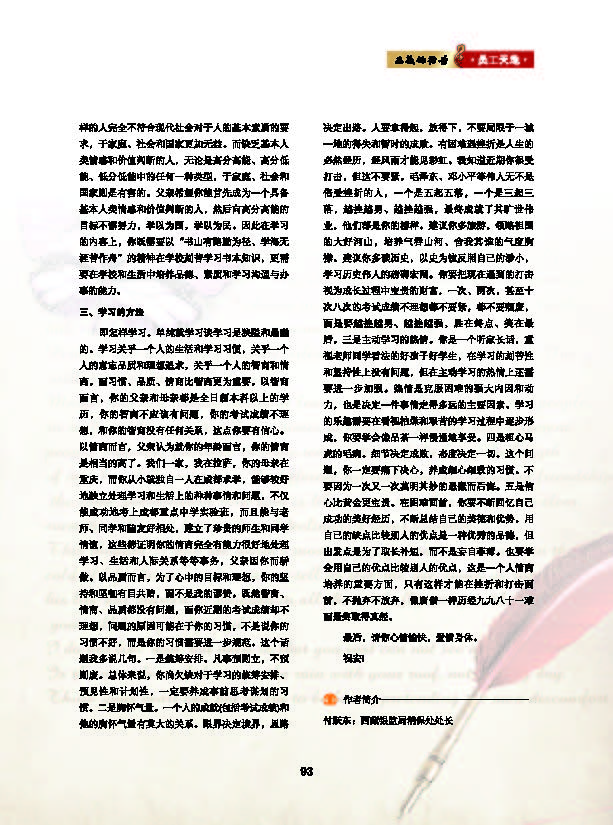 ·员工天地·
样的人完全不符合现代社会对于人的基本素质的要
求，于家庭、社会和国家更加无益。而缺乏基本人
类情感和价值判断的人，无论是高分高能、高分低
能、低分低能中的任何一种类型，于家庭、社会和
国家则是有害的。父亲希望你能首先成为一个具备
基本人类情感和价值判断的人，然后向高分高能的
目标不懈努力，学以为国，学以为民。因此在学习
的内容上，你既需要以“书山有路勤为径、学海无
涯苦作舟”的精神在学校刻苦学习书本知识，更需
要在学校和生活中培养品德、素质和学习沟通与办
事的能力。
三、学习的方法
即怎样学习。单纯就学习谈学习是狭隘和愚蠢
的。学习关乎一个人的生活和学习习惯，关乎一个
人的意志品质和理想追求，关乎一个人的智商和情
商。而习惯、品质、情商比智商更为重要。以智商
而言，你的父亲和母亲都是全日制本科以上的学
历，你的智商不应该有问题，你的考试成绩不理
想，和你的智商没有任何关系，这点你要有信心。
以情商而言，父亲认为就你的年龄而言，你的情商
是相当的高了。我们一家，我在拉萨，你的母亲在
重庆，而你从小就独自一人在成都求学，能够较好
地独立处理学习和生活上的种种事情和问题，不仅
能成功地考上成都重点中学实验班，而且能与老
师、同学和睦友好相处，建立了珍贵的师生和同学
情谊，这些都证明你的情商完全有能力很好地处理
学习、生活和人际关系等等事务，父亲因你而骄
傲。以品质而言，为了心中的目标和理想，你的坚
持和坚韧有目共睹，而不是我的谬赞。既然智商、
情商、品质都没有问题，而你近期的考试成绩却不
理想，问题的原因可能在于你的习惯，不是说你的
习惯不好，而是你的习惯需要进一步规范。这个话
题我多说几句。一是统筹安排。凡事预则立，不预
则废。总体来说，你尚欠缺对于学习的统筹安排、
预见性和计划性，一定要养成事前思考谋划的习
惯。二是胸怀气量。一个人的成就(包括考试成绩)和
他的胸怀气量有莫大的关系。眼界决定境界，思路
决定出路。人要拿得起，放得下，不要局限于一城
一地的得失和暂时的成败。有困难遇挫折是人生的
必然经历，经风雨才能见彩虹。我知道近期你很受
打击，但这不要紧。毛泽东、邓小平等伟人无不是
倍受挫折的人，一个是五起五落，一个是三起三
落，越挫越勇、越挫越强，最终成就了其旷世伟
业。他们都是你的榜样。建议你多旅游，领略祖国
的大好河山，培养气吞山河、舍我其谁的气度胸
襟。建议你多读历史，以史为镜反照自己的渺小，
学习历史伟人的磅礴宏阔。你要把现在遇到的打击
视为成长过程中宝贵的财富，一次、两次，甚至十
次八次的考试成绩不理想都不要紧，都不要颓废，
而是要越挫越勇、越挫越强，胜在终点、笑在最
后。三是主动学习的热情。你是一个听家长话，重
视老师同学看法的好孩子好学生，在学习的刻苦性
和坚持性上没有问题，但在主动学习的热情上还需
要进一步加强。热情是克服困难的强大内因和动
力，也是决定一件事情走得多远的主要因素。学习
的乐趣需要在看似枯燥和艰苦的学习过程中逐步形
成，你要学会像品茶一样慢慢地享受。四是粗心马
虎的毛病。细节决定成败，态度决定一切。这个问
题，你一定要痛下决心，养成细心细致的习惯。不
要因为一次又一次莫明其妙的悬崖而后悔。五是信
心比黄金更宝贵。在困难面前，你要不断回忆自己
成功的美好经历，不断总结自己的美德和优势。用
自己的缺点比较别人的优点是一种优秀的品德，但
出发点是为了取长补短，而不是妄自菲薄。也要学
会用自己的优点比较别人的优点，这是一个人情商
培养的重要方面，只有这样才能在挫折和打击面
前，不抛弃不放弃，像唐僧一样历经九九八十一难
而最终取得真经。
最后，请你心情愉快，爱惜身体。
祝安!
作者简介
付跃东：西藏银监局消保处处长
93